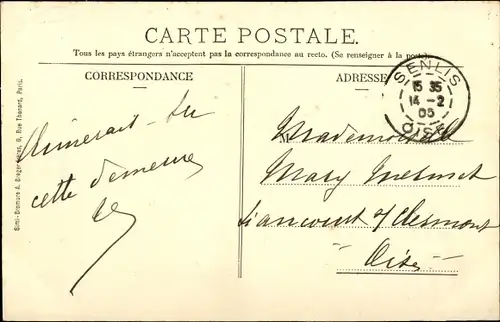 CARTE POSTALE.
Tous les pays étrangers n'acceptent pas la correspondance au recto. (Se renseigner à la poste).
CORRESPONDANCE
ADRESSE
SENLIS
15 35
14 - 2
05
OISE
Aimerait-tu
cette demeure
Mademoiselle
Mary
Liancourt s/ Clermont
Oise
Simi-Bromure A. Breger frères, 9, Rue Thénard, Paris.